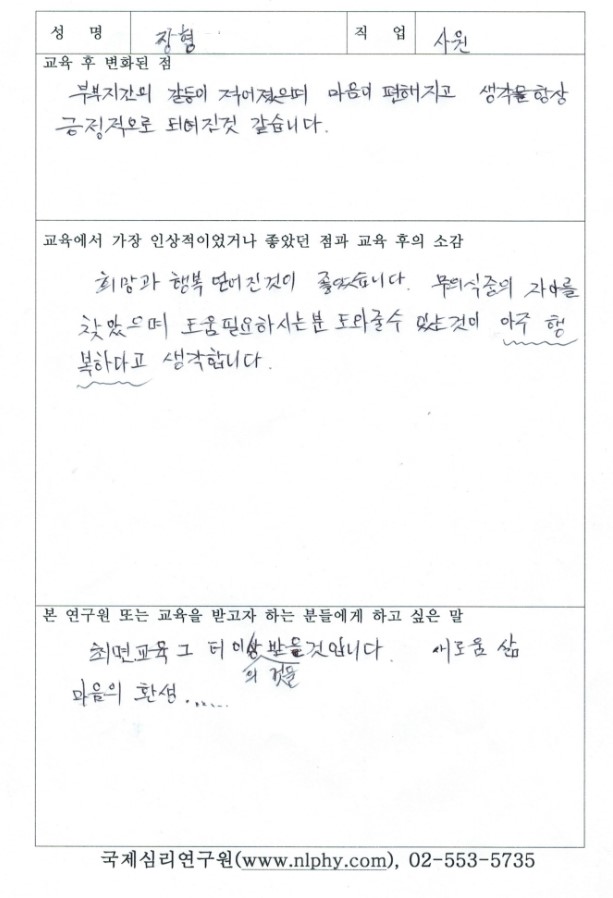 성 명 장형 직 업 사원
교육 후 변화된 점
부부지간의 갈등이 적어졌으며 마음이 편해지고 생각을 항상
긍정적으로 되어진것 같습니다.
교육에서 가장 인상적이었거나 좋았던 점과 교육 후의 소감
희망과 행복 얻어진것이 좋았습니다. 무의식중의 자아를
찾았으며 도움필요하시는분 도와줄수 있는것이 아주 행
복하다고 생각합니다.
본 연구원 또는 교육을 받고자 하는 분들에게 하고 싶은 말
최면교육 그 터 이상 받을것입니다. 새로움 삶
의 것들
마음의 환생......
국제심리연구원(www.nlphy.com), 02-553-5735